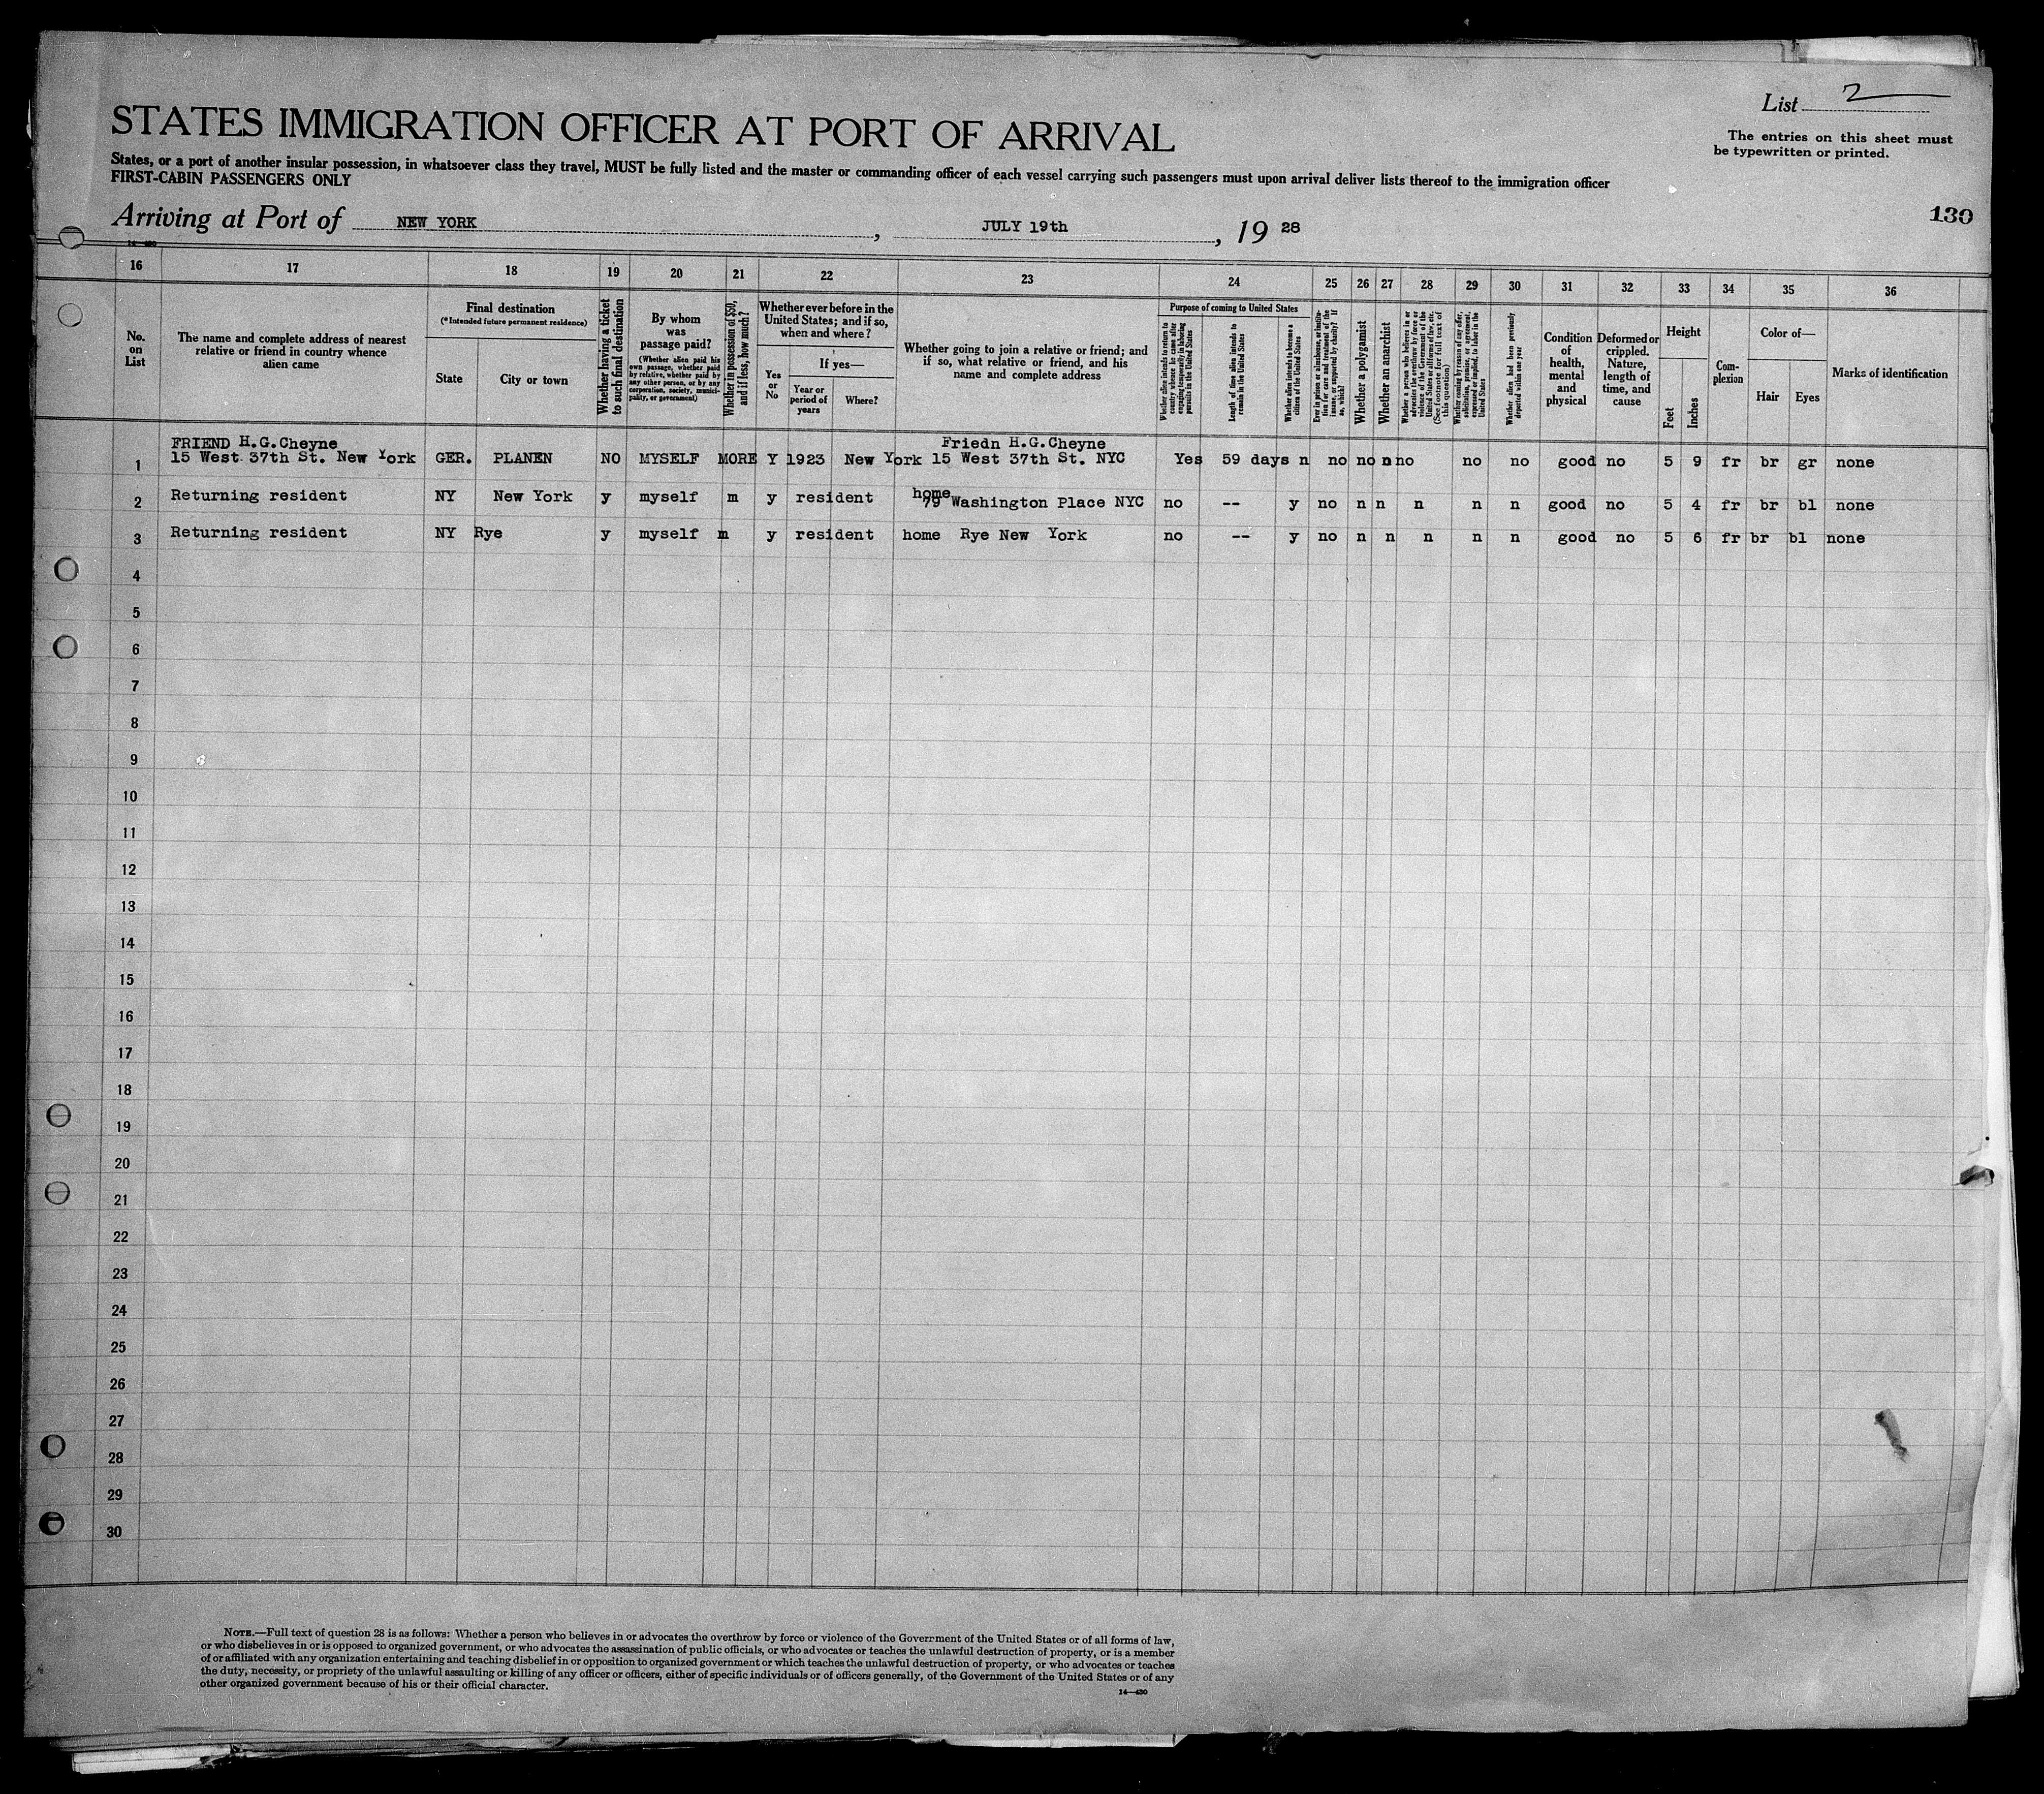 List 2
STATES IMMIGRATION OFFICER AT PORT OF ARRIVAL
The entries on this sheet must
be typewritten or printed.
States, or a port of another insular possession, in whatsoever class they travel, MUST be fully listed and the master or commanding officer of each vessel carrying such passengers must upon arrival deliver lists thereof to the immigration officer
FIRST-CABIN PASSENGERS ONLY
130
Arriving at Port of NEW YORK, JULY 19th, 19 28
14—430
16 17 18 19 20 21 22 23 24 25 26 27 28 29 30 31 32 33 34 35 36
No.
on
List
The name and complete address of nearest
relative or friend in country whence
alien came
Final destination
(*Intended future permanent residence)
State
City or town
Whether having a ticket
to such final destination
By whom
was
passage paid?
(Whether alien paid his
own passage, whether paid
by relative, whether paid by
any other person, or by any
corporation, society, munici-
pality, or government)
Whether in possession of $50,
and if less, how much?
Whether ever before in the
United States; and if so,
when and where?
Yes
or
No
If yes—
Year or
period of
years
Where?
Whether going to join a relative or friend; and
if so, what relative or friend, and his
name and complete address
Purpose of coming to United States
Whether alien intends to return to
country whence he came after
engaging temporarily in laboring
pursuits in the United States
Length of time alien intends to
remain in the United States
Whether alien intends to become a
citizen of the United States
Ever in prison or almshouse, or institu-
tion for care and treatment of the
insane, or supported by charity? If
so, which?
Whether a polygamist
Whether an anarchist
Whether a person who believes in or
advocates the overthrow by force or
violence of the Government of the
United States or all forms of law, etc.
(See footnote for full text of
this question)
Whether coming by reason of any offer,
solicitation, promise, or agreement,
expressed or implied, to labor in the
United States
Whether alien had been previously
deported within one year
Condition
of
health,
mental
and
physical
Deformed or
crippled.
Nature,
length of
time, and
cause
Height
Feet
Inches
Com-
plexion
Color of—
Hair
Eyes
Marks of identification
FRIEND H.G.Cheyne Friedn H.G.Cheyne
1 15 West 37th St. New York GER. PLANEN NO MYSELF MORE Y 1923 New York 15 West 37th St. NYC Yes 59 days n no no n no no no good no 5 9 fr br gr none
home
2 Returning resident NY New York y myself m y resident 79 Washington Place NYC no -- y no n n n n n good no 5 4 fr br bl none
3 Returning resident NY Rye y myself m y resident home Rye New York no -- y no n n n n n good no 5 6 fr br bl none
4
5
6
7
8
9
10
11
12
13
14
15
16
17
18
19
20
21
22
23
24
25
26
27
28
29
30
NOTE.—Full text of question 28 is as follows: Whether a person who believes in or advocates the overthrow by force or violence of the Government of the United States or of all forms of law,
or who disbelieves in or is opposed to organized government, or who advocates the assassination of public officials, or who advocates or teaches the unlawful destruction of property, or is a member
of or affiliated with any organization entertaining and teaching disbelief in or opposition to organized government or which teaches the unlawful destruction of property, or who advocates or teaches
the duty, necessity, or propriety of the unlawful assaulting or killing of any officer or officers, either of specific individuals or of officers generally, of the Government of the United States or of any
other organized government because of his or their official character.
14—430